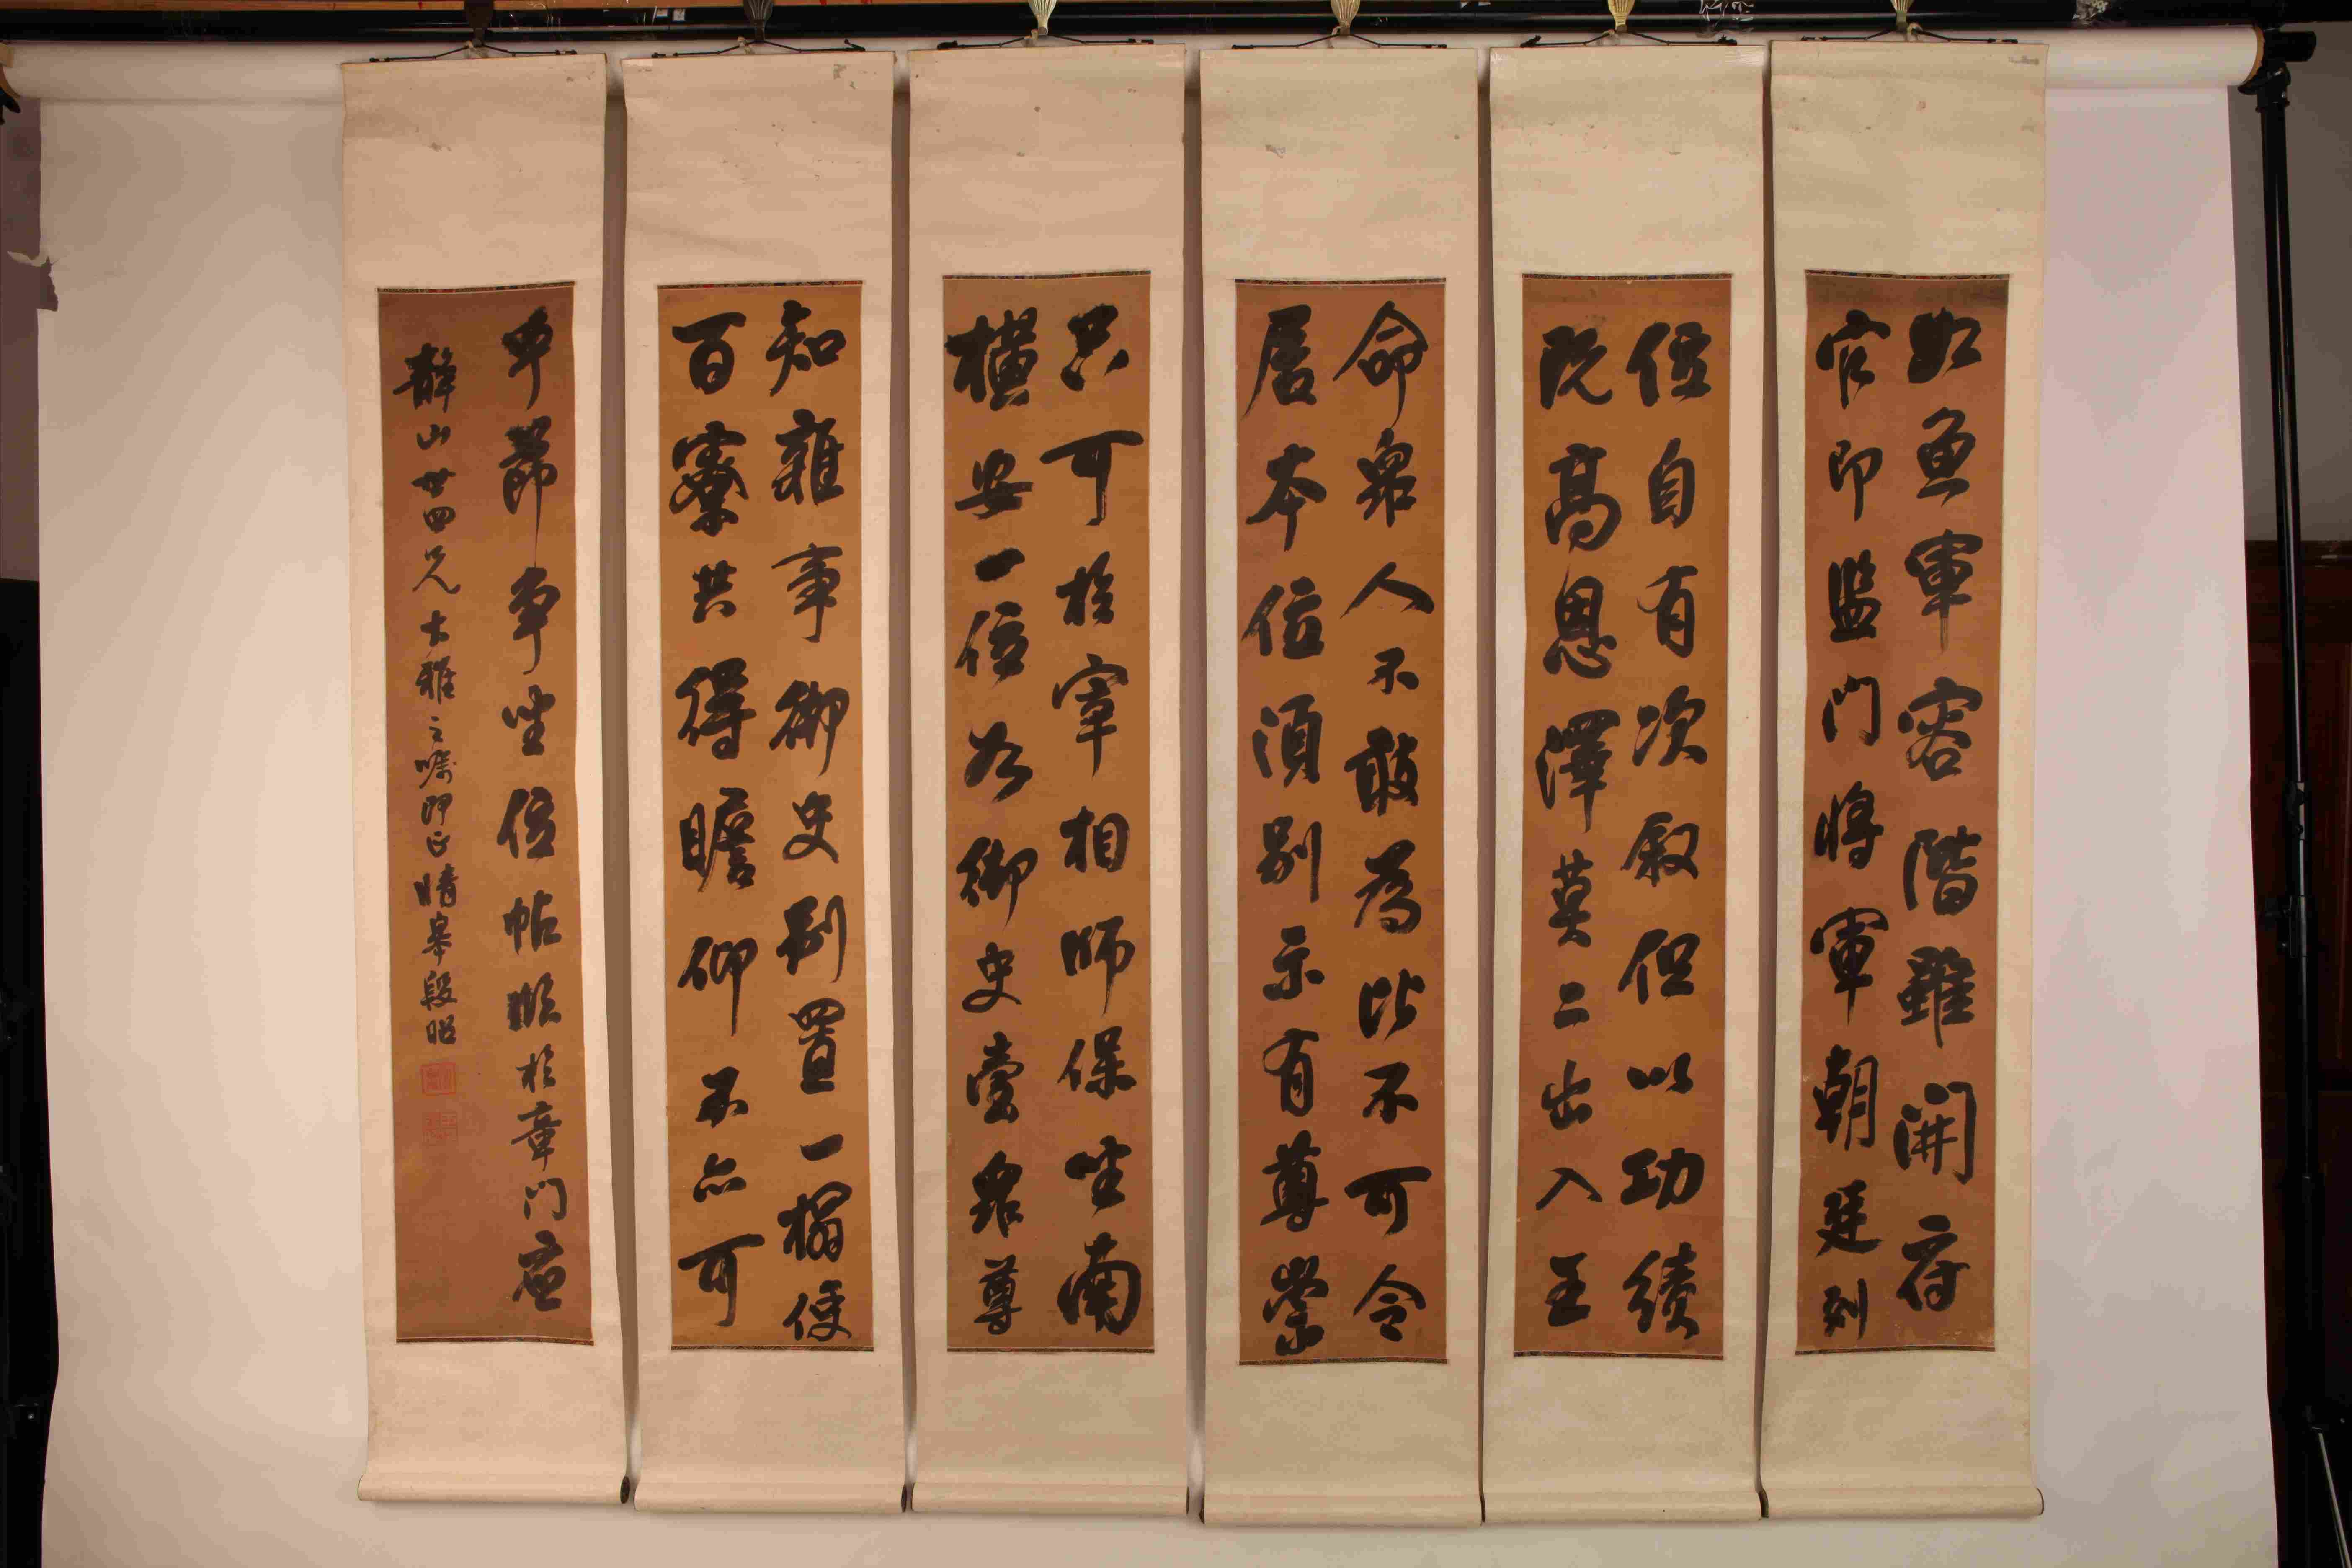 如魚軍容階雖開府
官即監門將軍朝廷列
位自有次敘但以功績
既高恩澤莫二出入王
命眾人不敢為比不可令
居本位須別示有尊崇
只可於宰相師保坐南
橫安一位如御史臺眾尊
知雜事御史別置一榻使
百寮共得瞻仰不亦可
乎節爭坐位帖臨於章門
山世四兄大雅之囑即正晴皋段昭